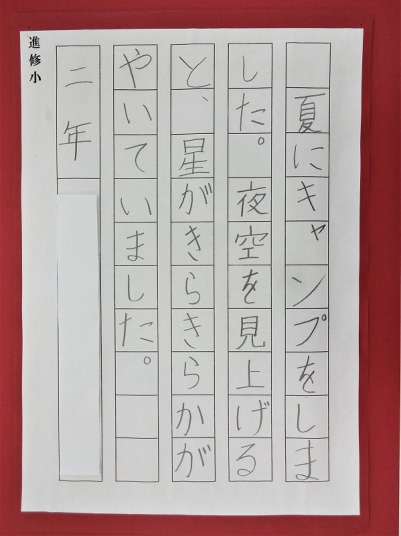 夏にキャンプをしま
した。夜空を見上げる
と、星がきらきらかが
やいていました。
二年
進修小